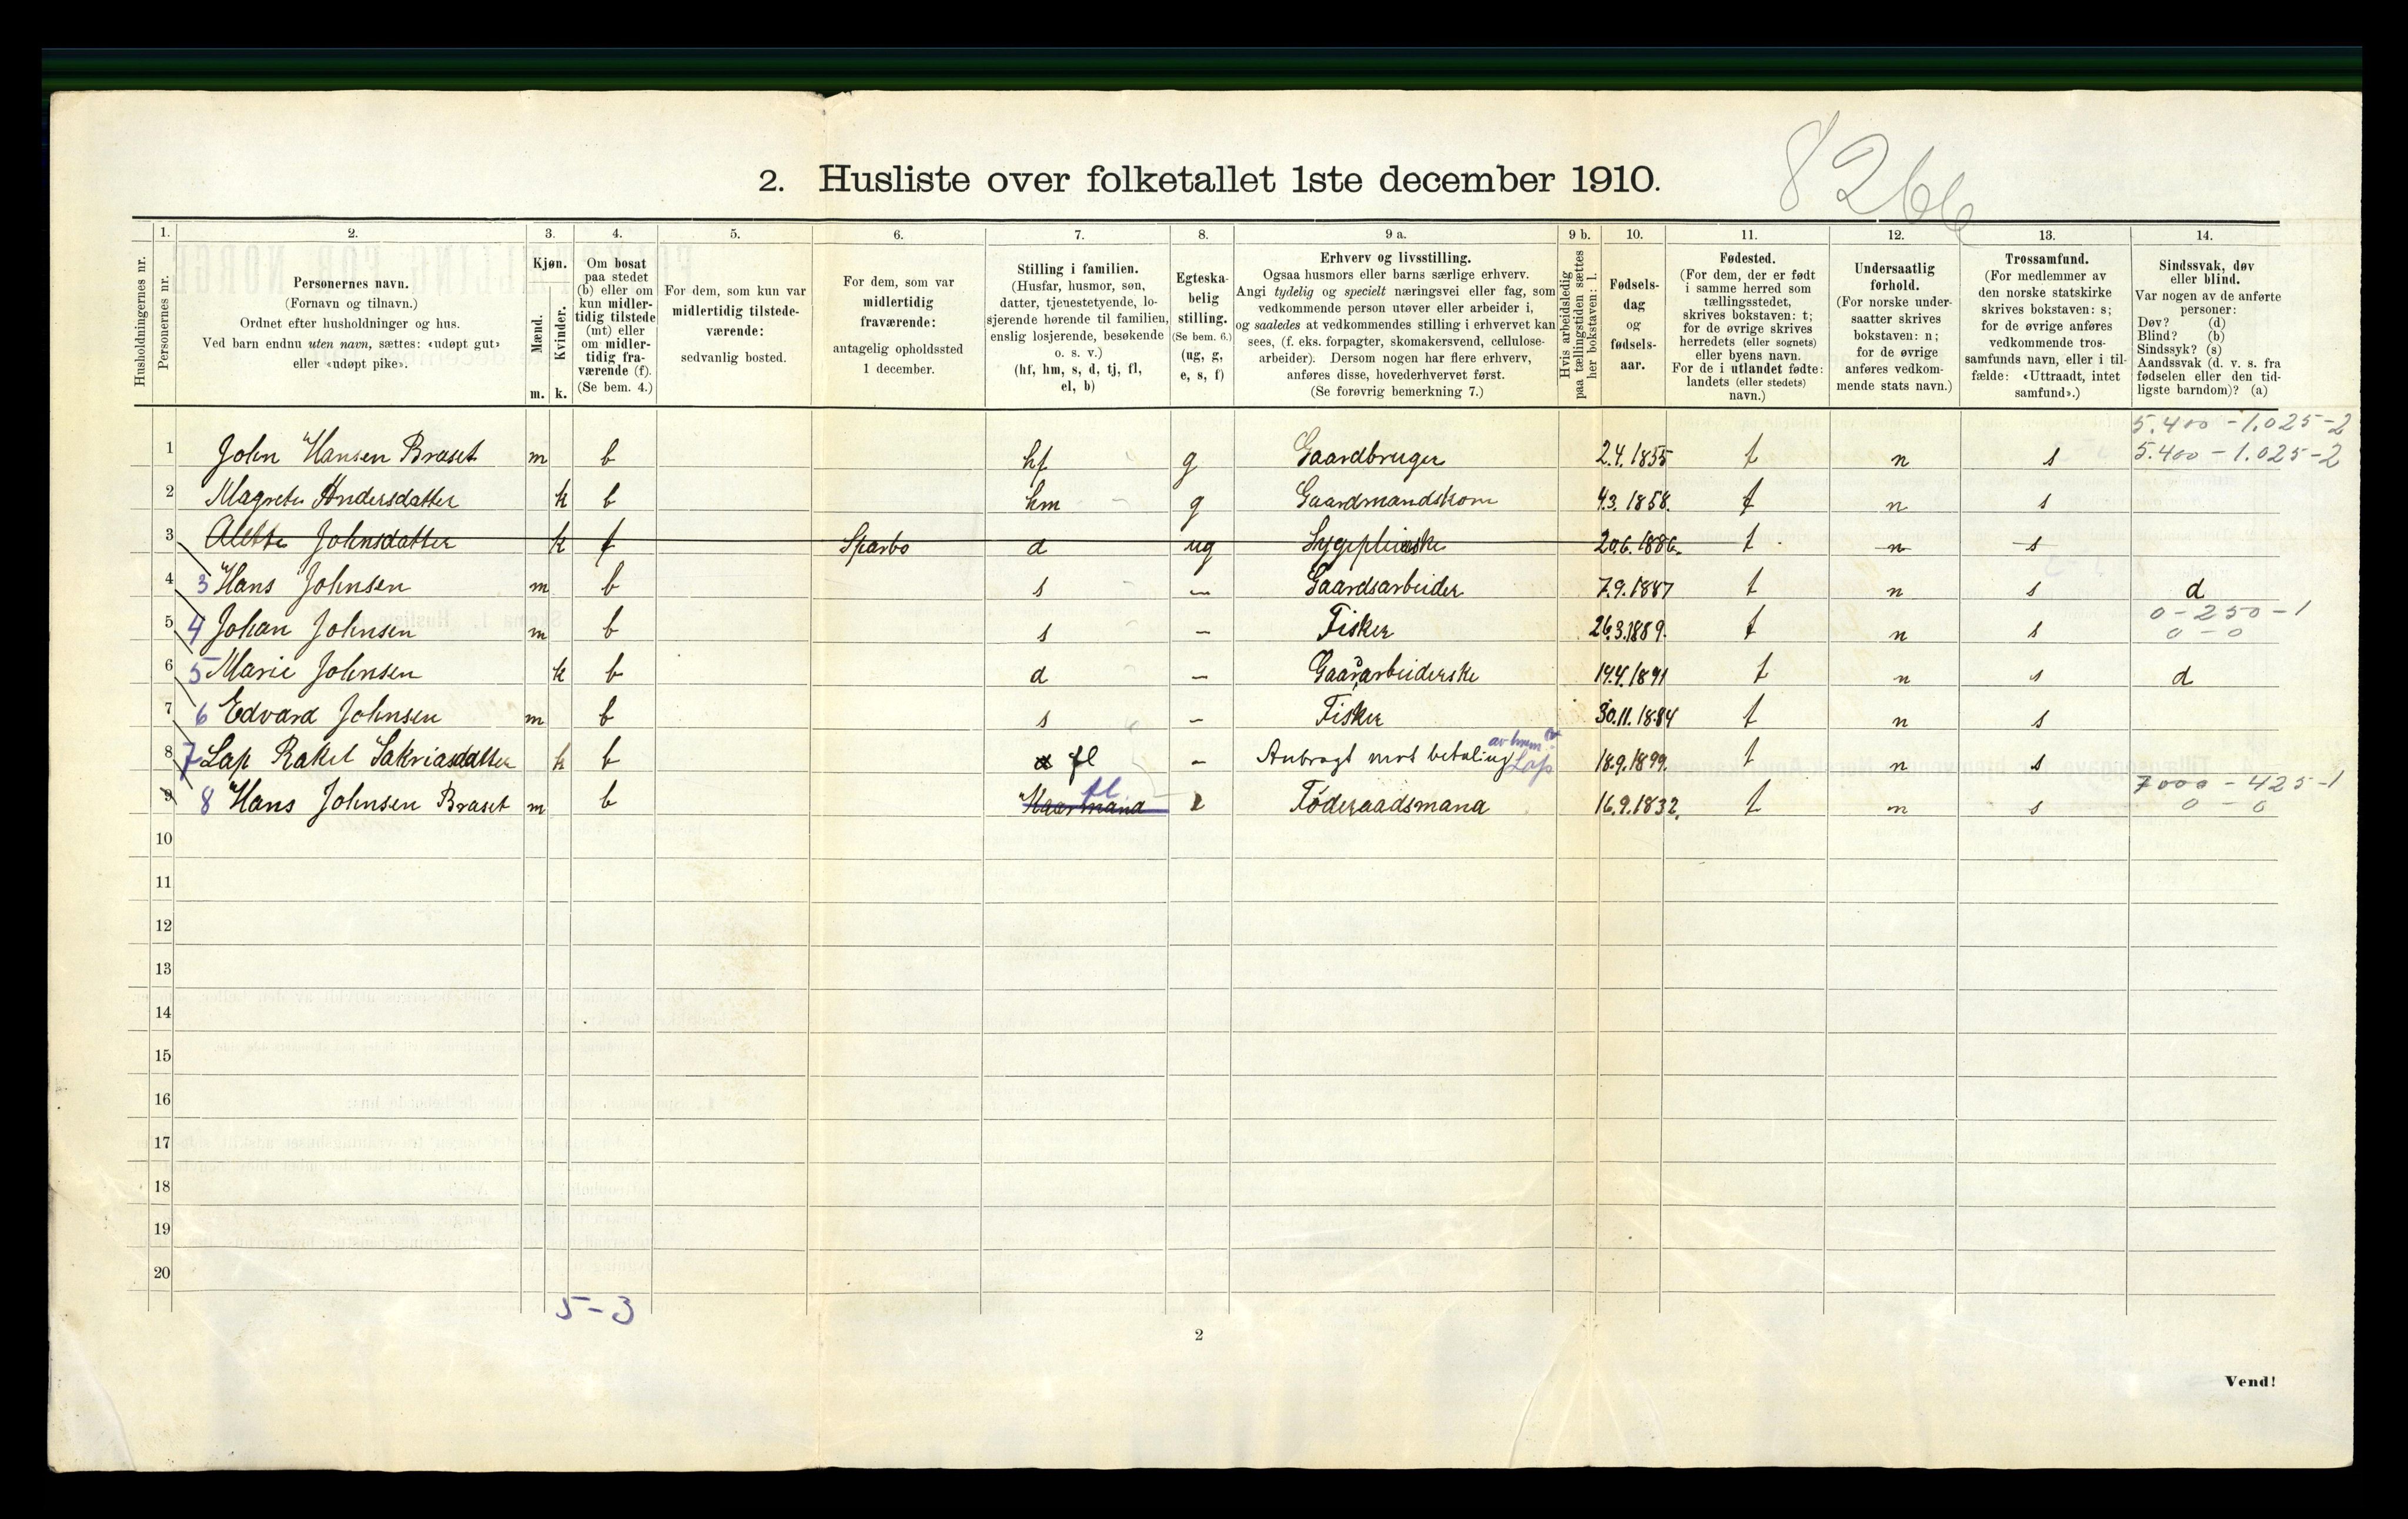 8266
2. Husliste over folketallet 1ste december 1910.
Husholdningernes nr.
1.
Personernes nr.
2.
Personernes navn.
(Fornavn og tilnavn.)
Ordnet efter husholdninger og hus.
Ved barn endnu uten navn, sættes: «udøpt gut»
eller «udøpt pike».
3.
Kjøn.
Mænd.
Kvinder.
m. k.
4.
Om bosat
paa stedet
(b) eller om
kun midler-
tidig tilstede
(mt) eller
om midler-
tidig fra-
værende (f).
(Se bem. 4.)
5.
For dem, som kun var
midlertidig tilstede-
værende:
sedvanlig bosted.
6.
For dem, som var
midlertidig
fraværende:
antagelig opholdssted
1 december.
7.
Stilling i familien.
(Husfar, husmor, søn,
datter, tjenestetyende, lo-
sjerende hørende til familien,
enslig losjerende, besøkende
o. s. v.)
(hf, hm, s, d, tj, fl,
el, b)
8.
Egteska-
belig
stilling.
(Se bem. 6.)
(ug, g,
e, s, f)
9 a.
Erhverv og livsstilling.
Ogsaa husmors eller barns særlige erhverv.
Angi tydelig og specielt næringsvei eller fag, som
vedkommende person utøver eller arbeider i,
og saaledes at vedkommendes stilling i erhvervet kan
sees, (f. eks. forpagter, skomakersvend, cellulose-
arbeider). Dersom nogen har flere erhverv,
anføres disse, hovederhvervet først.
(Se forøvrig bemerkning 7.)
9 b.
Hvis arbeidsledig
paa tællingstiden sættes
her bokstaven: l.
10.
Fødsels-
dag
og
fødsels-
aar.
11.
Fødested.
(For dem, der er født
i samme herred som
tællingsstedet,
skrives bokstaven: t;
for de øvrige skrives
herredets (eller sognets)
eller byens navn.
For de i utlandet fødte:
landets (eller stedets)
navn.)
12.
Undersaatlig
forhold.
(For norske under-
saatter skrives
bokstaven: n;
for de øvrige
anføres vedkom-
mende stats navn.)
13.
Trossamfund.
(For medlemmer av
den norske statskirke
skrives bokstaven: s;
for de øvrige anføres
vedkommende tros-
samfunds navn, eller i til-
fælde: «Uttraadt, intet
samfund».)
14.
Sindssvak, døv
eller blind.
Var nogen av de anførte
personer:
Døv? (d)
Blind? (b)
Sindssyk? (s)
Aandssvak (d. v. s. fra
fødselen eller den tid-
ligste barndom)? (a)
5.400 - 1.025 - 2
1 John Hansen Braset m b hf g Gaardbruger 2.4.1855 t n s 5.400 - 1.025 - 2
2 Magrete Andersdatter k b hm g Gaardmandskone 4.3.1858. t n s
3 Alette Johnsdatter k f Sparbo d ug Sygepleierske 20.6.1886. t n s
4 3 Hans Johnsen m b s — Gaardsarbeider 7.9.1887 t n s d
0 - 250 - 1
5 4 Johan Johnsen m b s — Fisker 26.3.1889. t n s 0 - 0
6 5 Marie Johnsen k b d — Gaardarbeiderske 14.4.1891 t n s d
7 6 Edvard Johnsen m b s — Fisker 30.11.1894 t n s
8 7 Lap Rakel Sakriasdatter k b fl — Anbragt mot betaling Lap 18.9.1899. t n s
fl 7000 - 425 - 1
9 8 Hans Johnsen Braset m b Kaarmand e Føderaadsmand 16.9.1832. t n s 0 - 0
10
11
12
13
14
15
16
17
18
19
20
5 - 3
2
Vend!